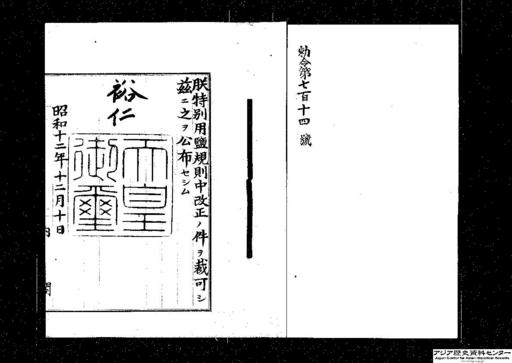 勅令第七百十四號
朕特別用鹽規則中改正ノ件ヲ裁可シ
茲ニ之ヲ公布セシム
裕仁
天皇
御璽
昭和十二年十二月十日
内閣
アジア歴史資料センター
Japan Center for Asian Historical Records